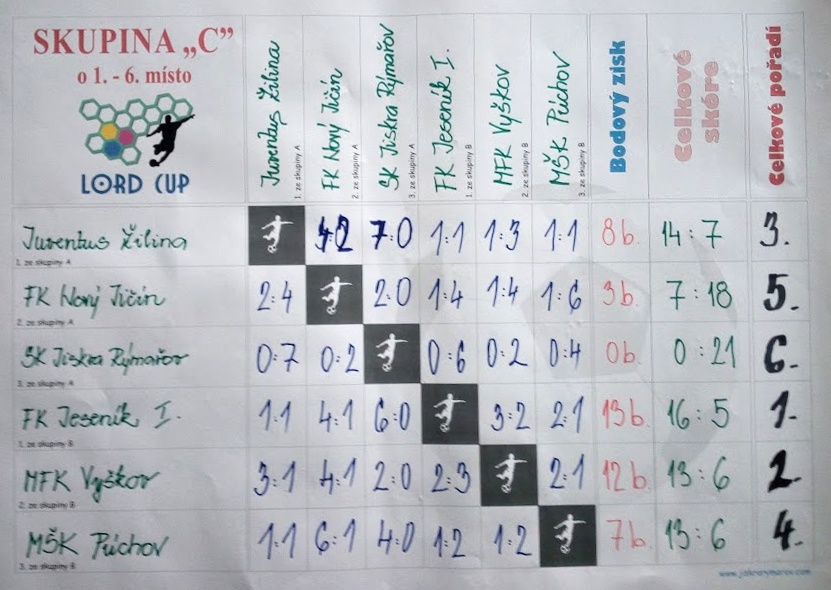 SKUPINA „C”
o 1. - 6. místo
LORD CUP
Juventus Žilina
1. ze skupiny A
FK Nový Jičín
2. ze skupiny A
SK Jiskra Rýmařov
3. ze skupiny A
FK Jeseník I.
1. ze skupiny B
MFK Vyškov
2. ze skupiny B
MŠK Púchov
3. ze skupiny B
Bodový zisk
Celkové skóre
Celkové pořadí
Juventus Žilina 4:2 7:0 1:1 1:3 1:1 8b. 14:7 3.
1. ze skupiny A
FK Nový Jičín 2:4 2:0 1:4 1:4 1:6 3b. 7:18 5.
2. ze skupiny A
SK Jiskra Rýmařov 0:7 0:2 0:6 0:2 0:4 0b. 0:21 6.
3. ze skupiny A
FK Jeseník I. 1:1 4:1 6:0 3:2 2:1 13b. 16:5 1.
1. ze skupiny B
MFK Vyškov 3:1 4:1 2:0 2:3 2:1 12b. 13:6 2.
2. ze skupiny B
MŠK Púchov 1:1 6:1 4:0 1:2 1:2 7b. 13:6 4.
3. ze skupiny B